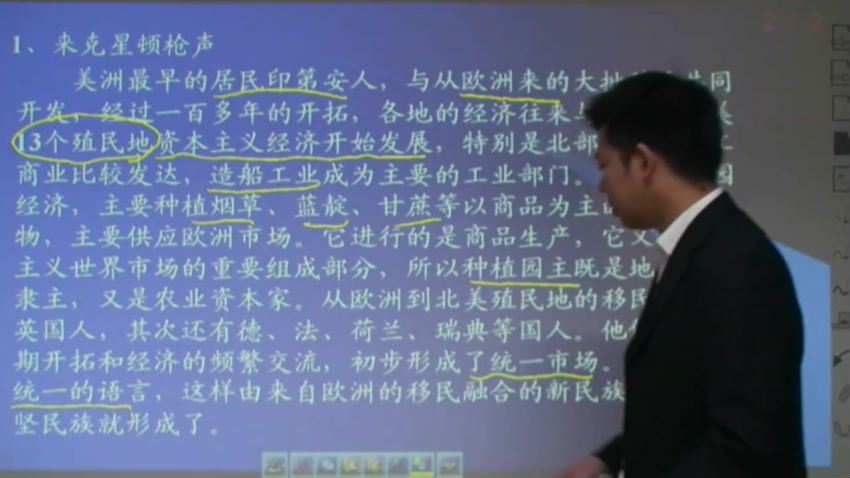 1、来克星顿枪声
美洲最早的居民印第安人，与从欧洲来的大批
同
开发，经过一百多年的开拓，各地的经济往来
13个殖民地资本主义经济开始发展，特别是北部
商业比较发达，造船工业成为主要的工业部门。
园
经济，主要种植烟草、蓝靛、甘蔗等以商品为主
物，主要供应欧洲市场。它进行的是商品生产，它又
主义世界市场的重要组成部分，所以种植园主既是地
隶主，又是农业资本家。从欧洲到北美殖民地的移民
英国人，其次还有德、法、荷兰、瑞典等国人。他
期开拓和经济的频繁交流，初步形成了统一市场。
统一的语言，这样由来自欧洲的移民融合的新民族
坚民族就形成了。